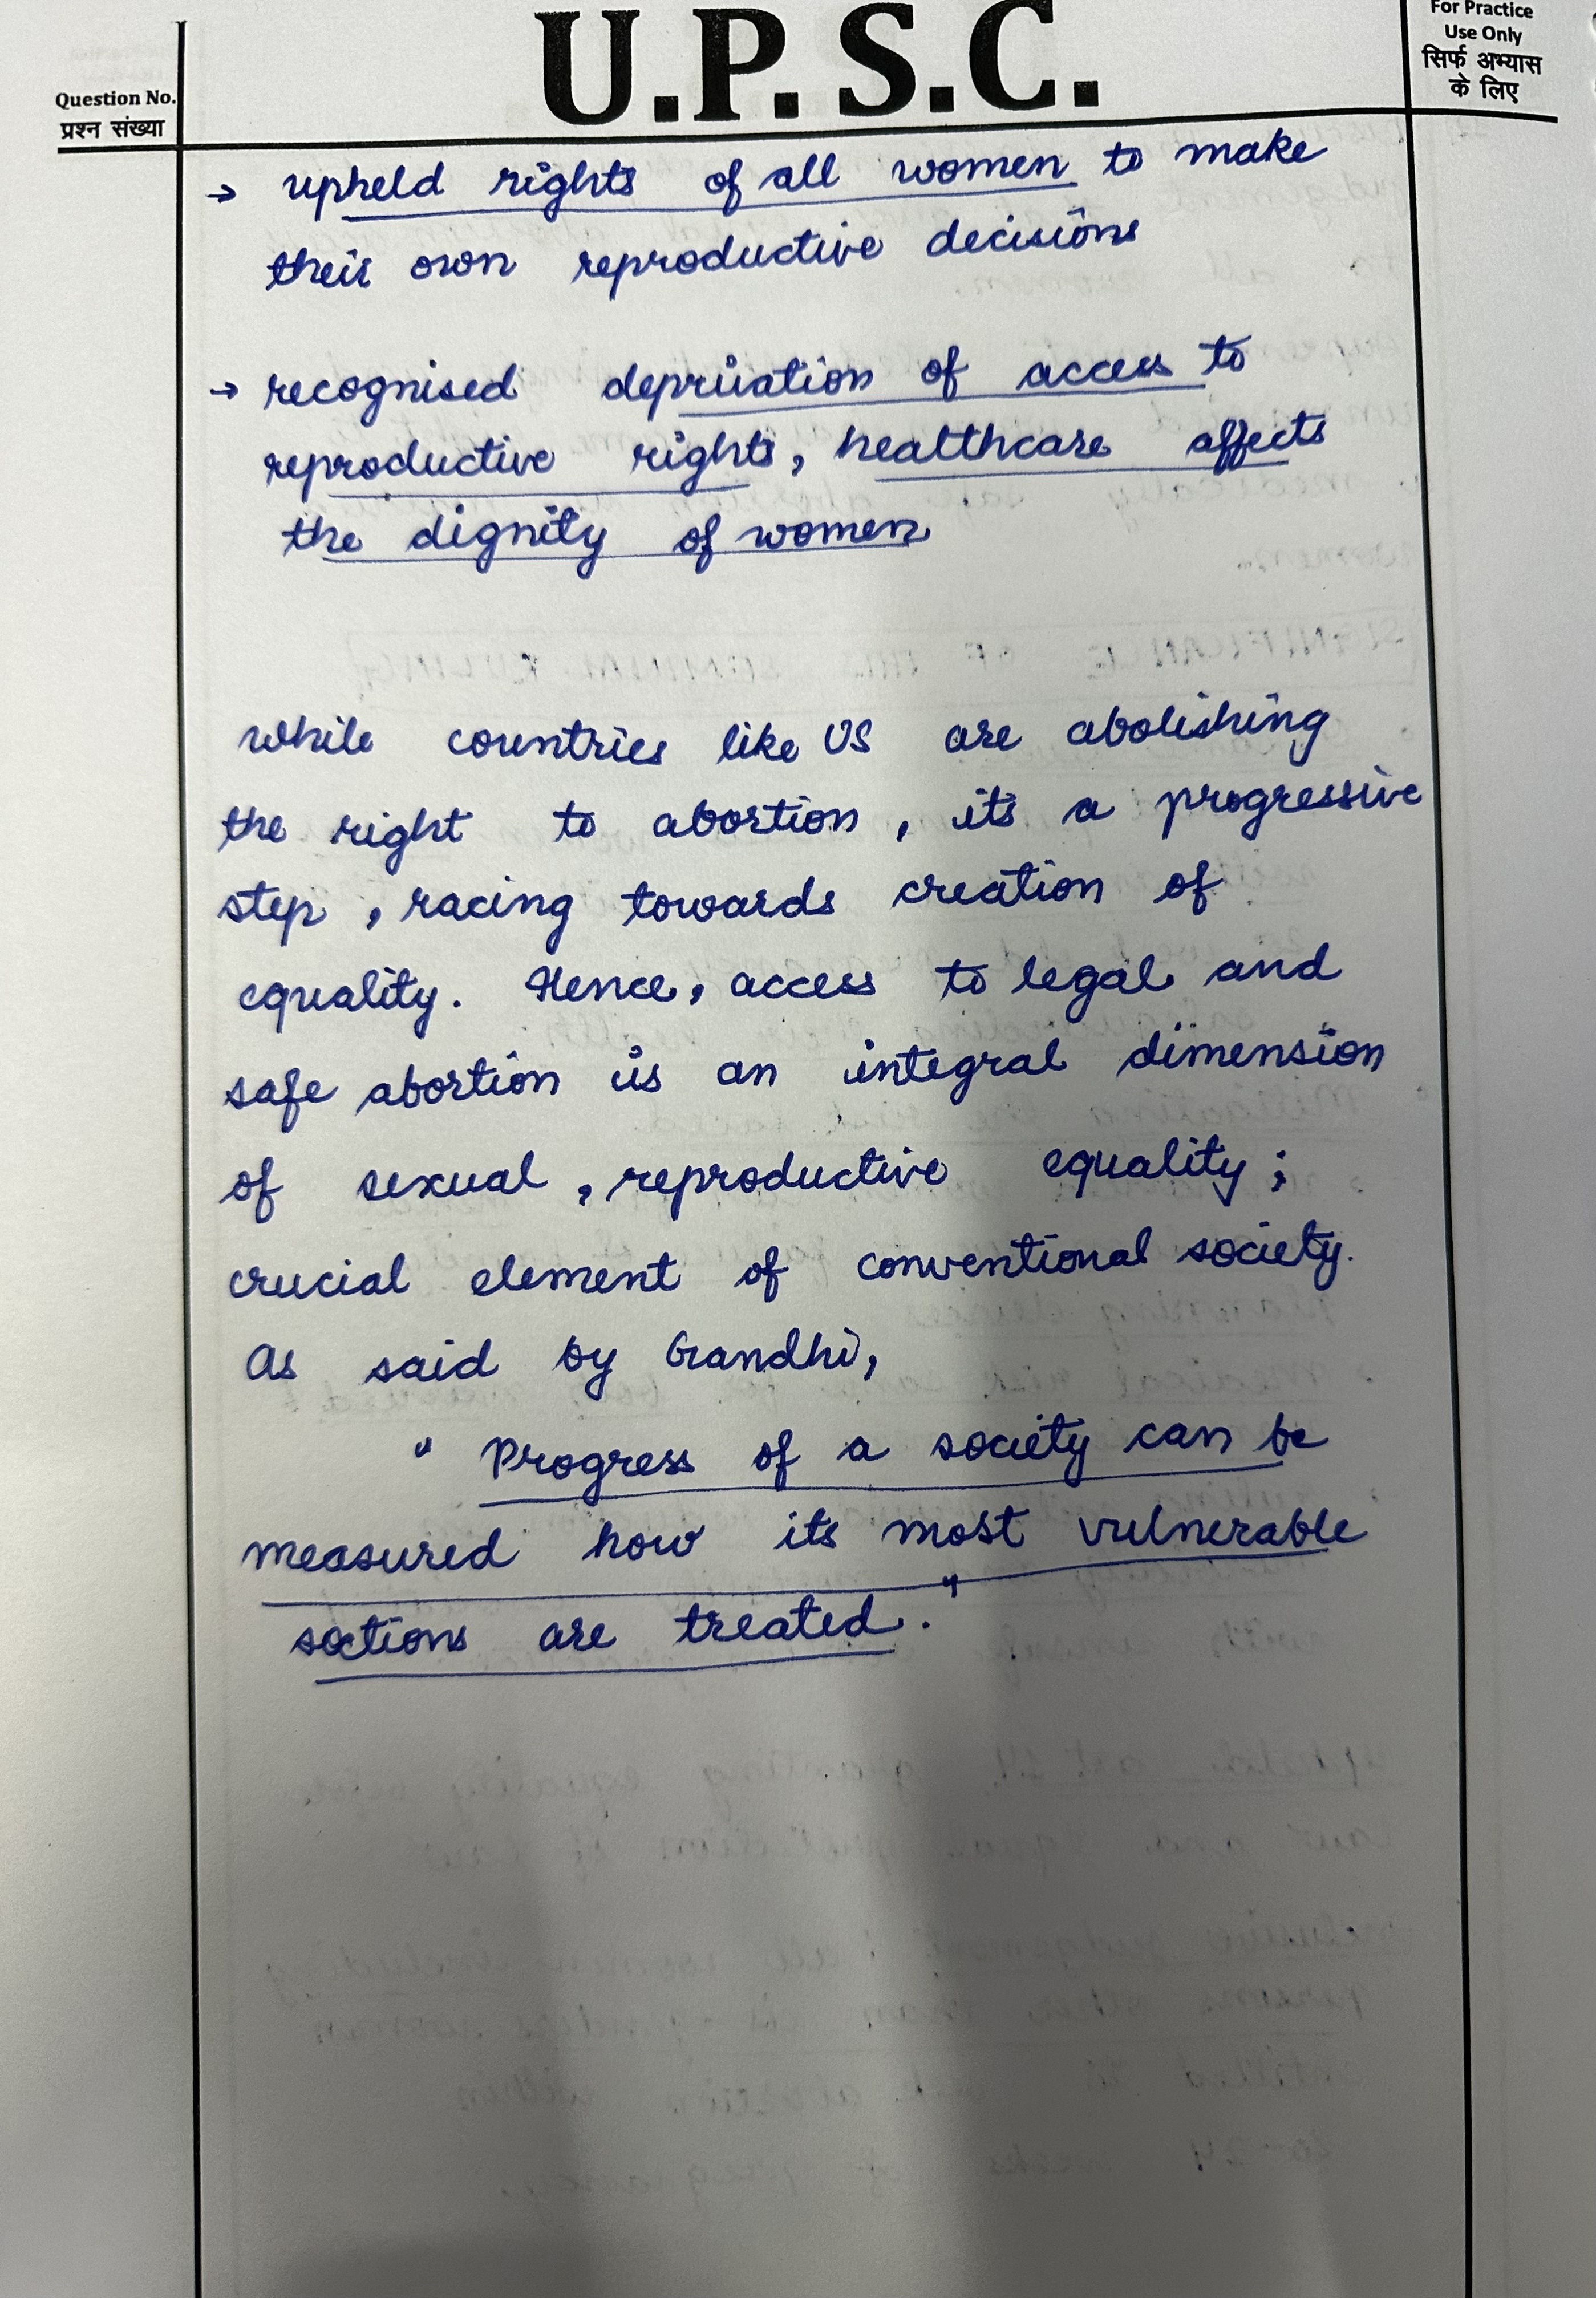 U.P.S.C.
For Practice
Use Only
सिर्फ अभ्यास
के लिए
Question No.
प्रश्न संख्या
→ upheld rights of all women to make
their own reproductive decisions
→ recognised deprivation of access to
reproductive rights, healthcare affects
the dignity of women
while countries like US are abolishing
the right to abortion, its a progressive
step, racing towards creation of
equality. Hence, access to legal and
safe abortion is an integral dimension
of sexual, reproductive equality;
crucial element of conventional society.
As said by Gandhi,
" Progress of a society can be
measured how its most vulnerable
sections are treated."